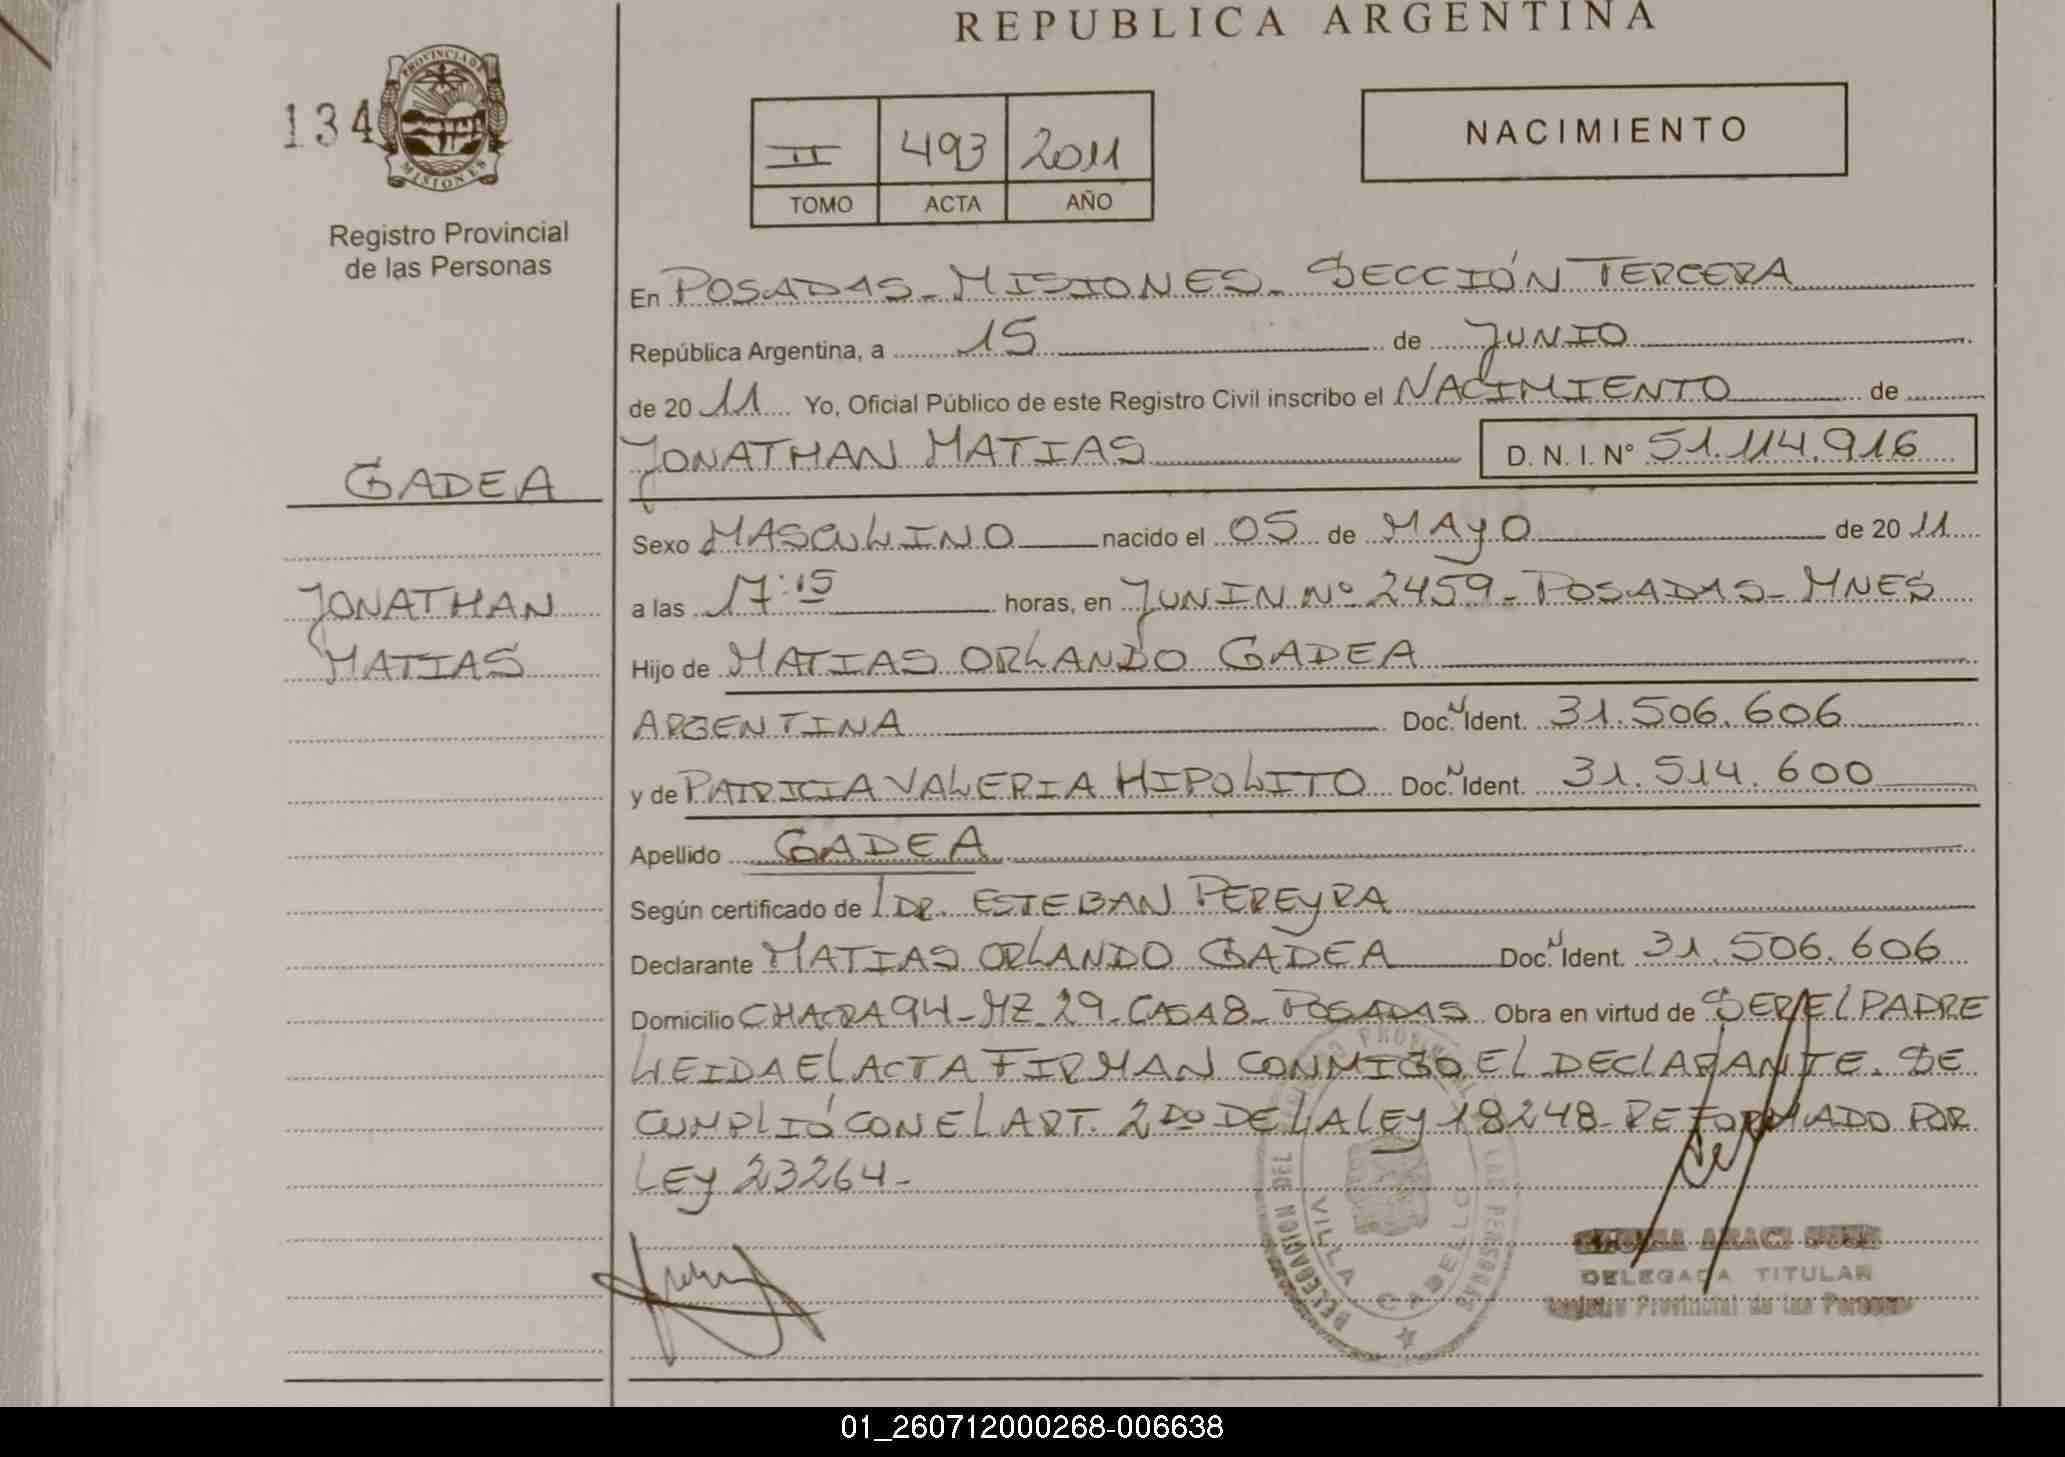 REPUBLICA ARGENTINA
134
PROVINCIA DE
MISIONES
Registro Provincial
de las Personas
II 493 2011
TOMO ACTA AÑO
NACIMIENTO
En POSADAS - MISIONES - SECCIÓN TERCERA
República Argentina, a 15 de JUNIO
de 20 11 Yo, Oficial Público de este Registro Civil inscribo el NACIMIENTO de
JONATHAN MATIAS D. N. I. Nº 51.114.916
GADEA
JONATHAN
MATIAS
Sexo MASCULINO nacido el 05 de MAYO de 20 11
a las 17:15 horas, en JUNIN Nº 2459 - POSADAS - MNES
Hijo de MATIAS ORLANDO GADEA
ARGENTINA Doc. N Ident. 31.506.606
y de PATRICIA VALERIA HIPOLITO Doc. N Ident. 31.514.600
Apellido GADEA
Según certificado de DR. ESTEBAN PEREYRA
Declarante MATIAS ORLANDO GADEA Doc. N Ident. 31.506.606
Domicilio CHACRA 94 - MZ 29 - CASA 8 - POSADAS Obra en virtud de SER EL PADRE
LEIDA EL ACTA FIRMAN CONMIGO EL DECLARANTE. SE
CUMPLIÓ CON EL ART. 2DO DE LA LEY 18248 - REFORMADO POR
LEY 23264 -
DELEGACION DEL REGISTRO PROVINCIAL DE LAS PERSONAS
VILLA CABELLO
DELEGADA TITULAR
Registro Provincial de las Personas
01_260712000268-006638